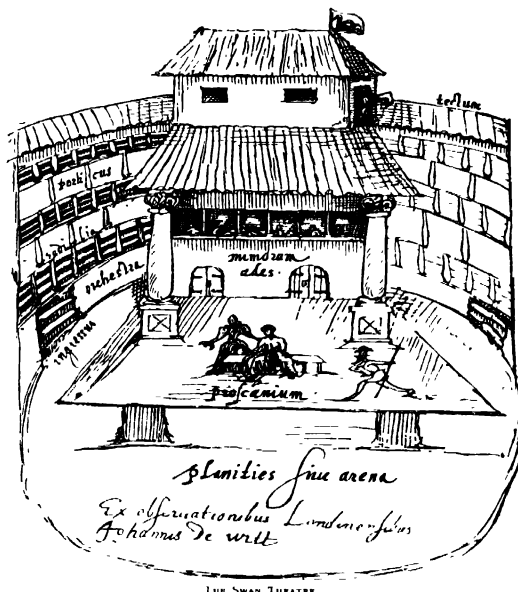 tectum
porticus
sedilia
orchestra
mimorum
ædes.
ingressus
proscænium.
planities siue arena
Ex obseruationibus Londinensibus
Johannis De witt
THE SWAN THEATRE